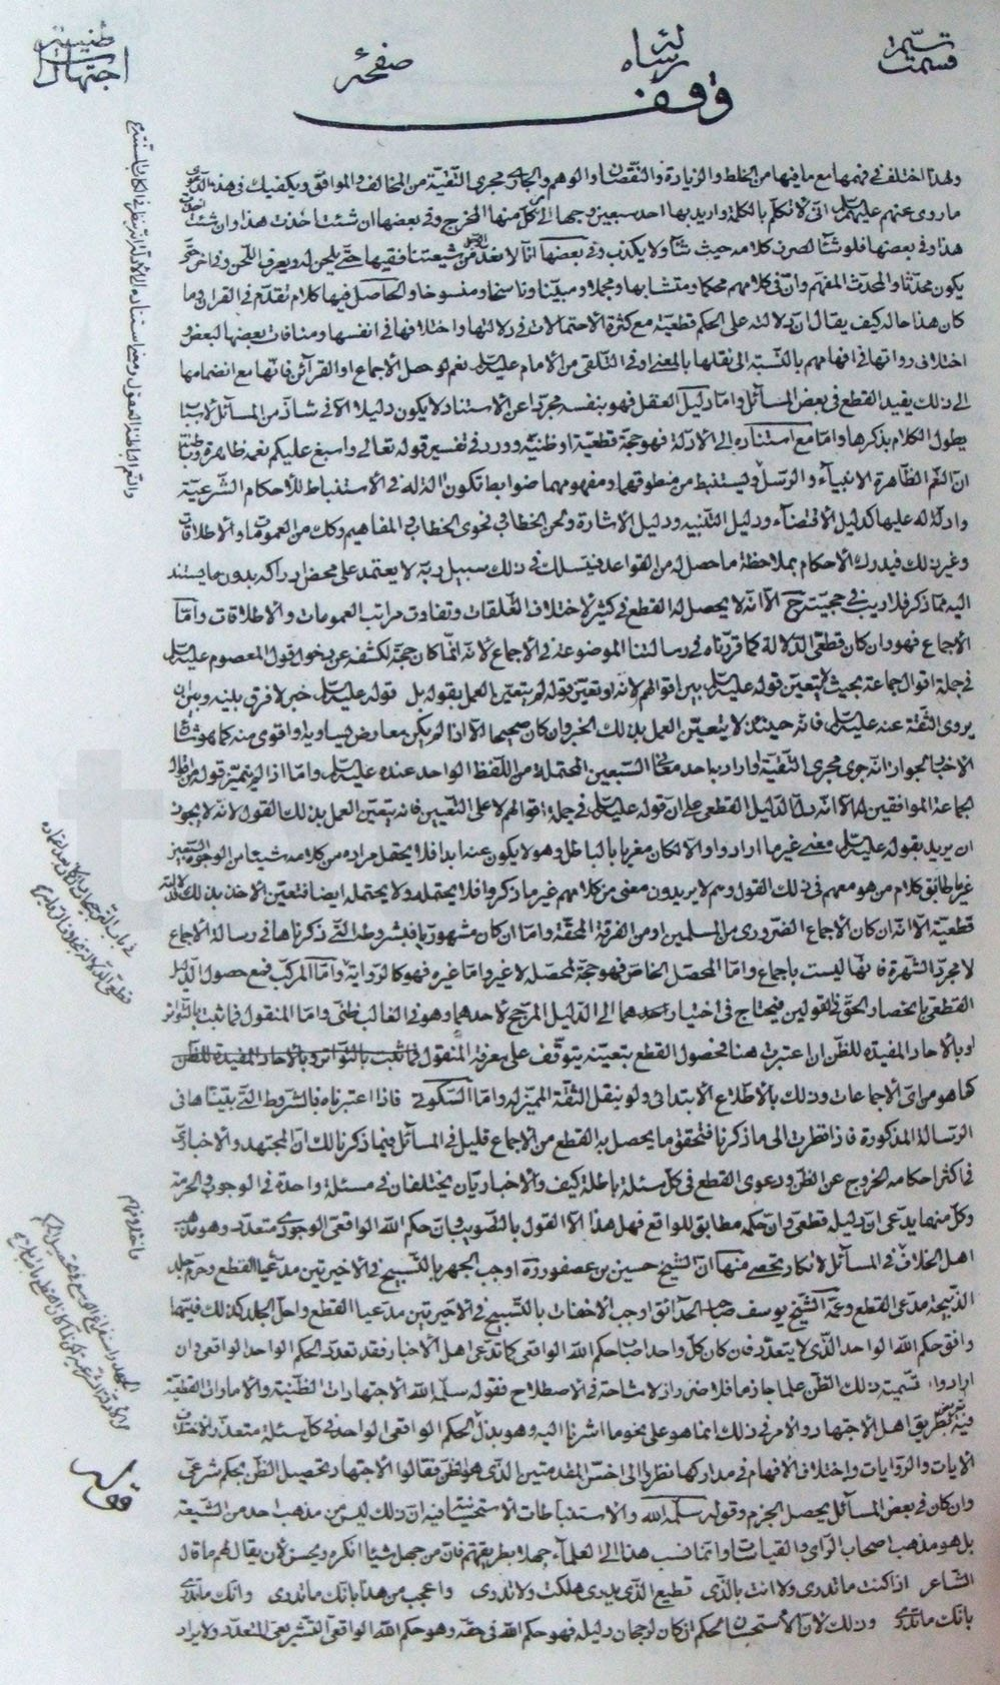 وقف
صفحه
رساله
ولهذا اختلف في فهمها مع ما فيها من الخلط والزيادة والنقصان والوهم والجارى مجرى التقية من المخالف والموافق ويكفيك في هذه الدعوى
ما روى عنهم عليهم السلم اني لا تكلم بالكلمة واريد بها احد سبعين وجها الى كل منها المخرج وفي بعضها ان شئت اخذت هذا وان شئت
هذا وفي بعضها فلو شاء لصرف كلامه حيث شاء ولا يكذب وفي بعضها انا لا نعد الرجل من شيعتنا فقيها حتى يلحن له ويعرف اللحن وفي اخر حتى
يكون محدثا والمحدث المفهم وان في كلامهم محكما ومتشابها ومجملا ومبينا وناسخا ومنسوخا والحاصل فيها كلام تقدم في القران وما
كان هذا حاله كيف يقال ان دلالته على الحكم قطعية مع كثرة الاحتمالات في دلالتها واختلافها في انفسها ومنافات بعضها لبعض و
اختلاف رواتها في افهامهم بالنسبة الى نقلها بالمعنى او في التلقى من الامام عليه السلم نعم لو حصل الاجماع او القرآئن فانها مع انضمامها
الى ذلك يفيد القطع في بعض المسائل واما دليل العقل فهو بنفسه مجردا عن الاستناد لا يكون دليلا الا في شاذ من المسائل لاسباب
يطول الكلام بذكرها واما مع استناده الى الادلة فهو حجة قطعية او ظنية وورد في تفسير قوله تعالى واسبغ عليكم نعمه ظاهرة وباطنة
ان النعم الظاهرة الانبيآء والرسل وليستنبط من منطوقهما ومفهومهما ضوابط تكون الة له في الاستنباط للاحكام الشرعية
وادلة له عليها كدليل الاقتضآء ودليل التنبيه ودليل الاشارة ولحن الخطاب في فحوى الخطاب في المفاهيم وكك من العمومات والاطلاقات
وغير ذلك فيدرك الاحكام بملاحظة ما حصل له من القواعد فيسلك في ذلك سبيل ربه لا يعتمد على محض ادراكه بدون ما يستند
اليه مما ذكر فلا ريب في حجيته ح الا انه لا يحصل له القطع في كثير لاختلاف التعلقات وتفاوت مراتب العمومات والاطلاقات واما
الاجماع فهو وان كان قطعى الدلالة كما قررناه في رسالتنا الموضوعة في الاجماع لانه انما كان حجة لكشفه عن دخول قول المعصوم عليه السلم
في جملة اقوال جماعة بحيث لم يتعين قوله عليه السلم بين اقوالهم لانه لو تعين قوله لم يتعين العمل بقوله بل قوله عليه السلم خبر لا فرق بينه وبين ان
يروى الثقة عنه عليه السلم فانه حينئذ لا يتعين العمل بذلك الخبر وان كان صحيحا الا اذا لم يكن معارض يساويه او اقوى منه كما هو شان
الاخبار لجواز انه جرى مجرى التقية او اراد به احد معانى السبعين المحتملة من اللفظ الواحد عنده عليه السلم واما اذا لم يتميز قوله من اقوال
الجماعة الموافقين له الا انه دل الدليل القطعى على ان قوله عليه السلم في جملة اقوالهم لا على التعيين فانه يتعين العمل بذلك القول لانه لا يجوز
ان يريد بقوله عليه السلم معنى غير ما ارادوا والا لكان مغريا بالباطل وهو لا يكون عندنا ابدا فلا يحتمل مراده من كلامه شيئا من الوجوه السبعين
غير ما طابق كلام من هو معهم في ذلك القول وهم لا يريدون معنى من كلامهم غير ما ذكروا فلا يحتملوه ولا يحتمله ايضا فتعين الاخذ بذلك دلالة
قطعية الا انه ان كان الاجماع الضرورى من المسلمين او من الفرقة المحقة واما ان كان مشهوريا فبشروطه التي ذكرناها في رسالة الاجماع
لا مجرد الشهرة فانها ليست باجماع واما المحصل الخاص فهو حجة لمحصله لا غير واما غيره فهو كالرواية واما المركب فمع حصول الدليل
القطعى بانحصار الحق في القولين فيحتاج في اختيار احدهما الى الدليل المرجح لاحدهما وهو في الغالب ظنى واما المنقول فما ثبت بالتواتر
او بالآحاد المفيدة للظن ان اعتبرت هنا فحصول القطع بتعينه يتوقف على معرفة المنقول فما ثبت بالتواتر وبالآحاد المفيدة للظن
كما هو من اى الاجماعات وذلك بالاطلاع الابتدائى ولو بنقل الثقة المميز له واما السكوتى فاذا اعتبرناه فبالشروط التي بيناها في
الرسالة المذكورة فاذا نظرت الى ما ذكرنا فتحقق ما يحصل به القطع من الاجماع قليل في المسائل فيما ذكرنا لك ان المجتهد والاخبارى
في اكثر احكامه الخروج عن الظن ودعوى القطع في كل مسئلة باطلة كيف والاخباريان يختلفان في مسئلة واحدة في الوجوب والحرمة
وكل منهما يدعى ان دليله قطعى وان حكمه مطابق للواقع فهل هذا الا القول بالتصويب وبان حكم الله الواقعى الوجودى متعدد وهو مذهب
اهل الخلاف في المسائل لا تكاد تحصى منها ان الشيخ حسين بن عصفور ره اوجب الجهر بالتسبيح في الاخيرتين مدعيا القطع وحرم جلد
الذبيحة مدعى القطع وعمه الشيخ يوسف صاحب الحدائق اوجب الاخفات بالتسبيح في الاخيرتين مدعيا القطع واحل الجلد كذلك فايهما
وافق حكم الله الواحد الذى لا يتعدد فان كان كل واحد اصاب حكم الله الواقعى كما تدعى اهل الاخبار فقد تعدد الحكم الواحد الواقعى وان
ارادوا تسمية ذلك الظن علما جازما فلا ضرر اذ لا مشاحة في الاصطلاح فقوله سلمه الله الاجتهادات الظنية والامارات القطعية
فيه تعريض بطريق اهل الاجتهاد والامر في ذلك انما هو على نحو ما اشرنا اليه وهو بذل الحكم الواقعى الواحد في كل مسئلة متعذر لاختلاف
الايات والروايات واختلاف الافهام في مداركها نظروا الى اخس المقدمتين الذى هو الظن فقالوا الاجتهاد تحصيل الظن بحكم شرعى
وان كان في بعض المسائل يحصل الجزم وقوله سلمه الله والاستنباطات الاستحسانية فيه ان ذلك ليس من مذهب احد من الشيعة
بل هو مذهب اصحاب الراى والقياسات وانما نسب هذا الى العلمآء جهلا بطريقتهم فان من جهل شيئا انكره ويحسن لان يقال لهم ما قال
الشاعر اذا كنت ما تدرى ولا انت بالذى تطيع الذى يدرى هلكت ولا تدرى واعجب من هذا بانك ما تدرى وانك ما تدرى
بانك ما تدرى وذلك لان الاستحسان محكم اذ كان لرجحان دليله فهو حكم الله في حقه وهو حكم الله الواقعى التشريعى المتعدد ولا يراد
فقوله